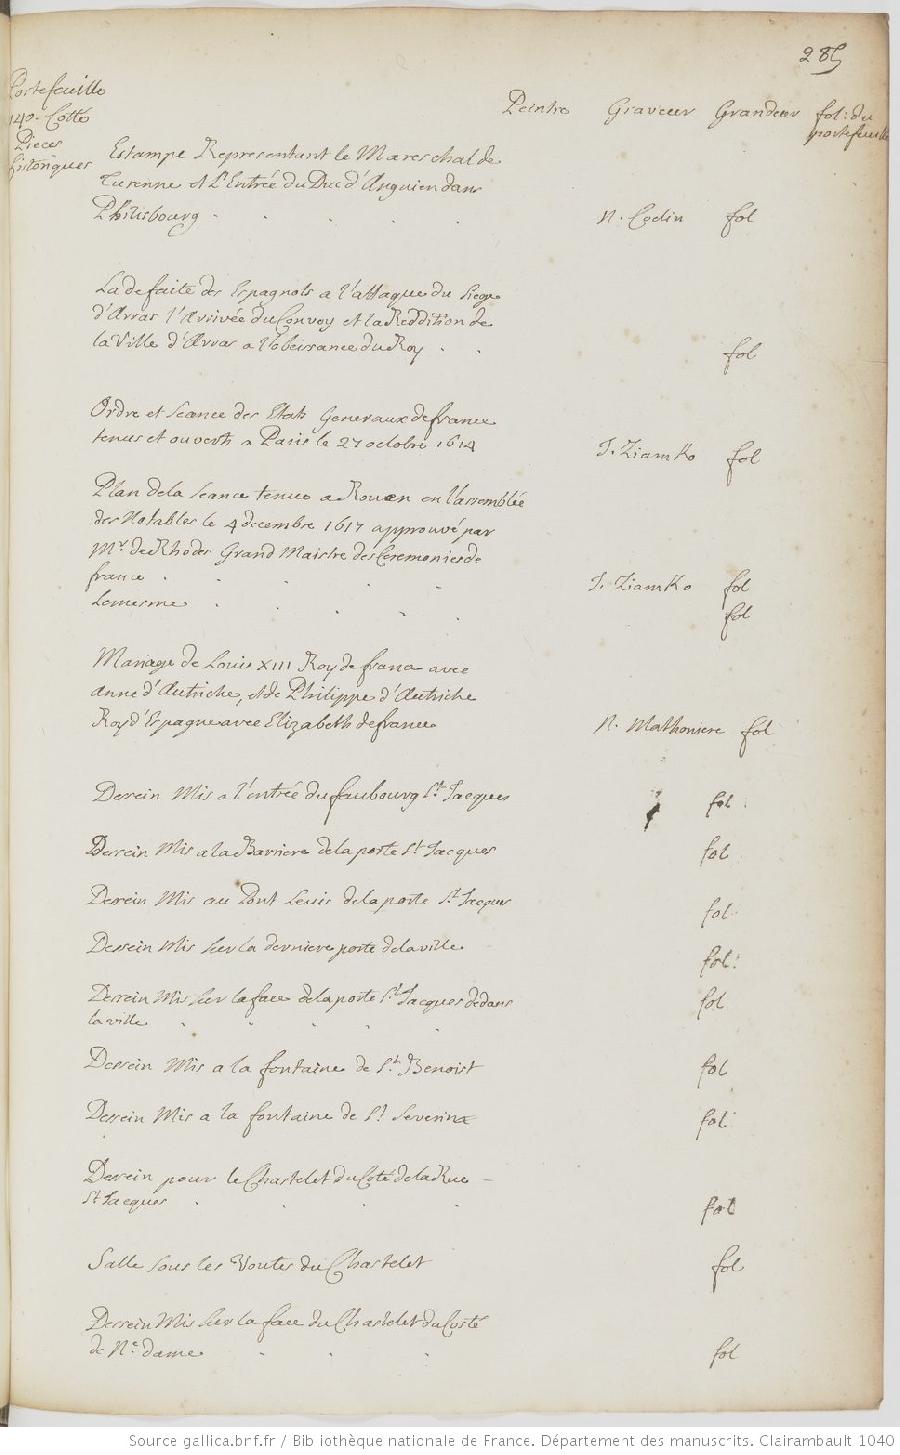 285
Portefeuille
140. Cotté
Pieces
historiques
Peintre Graveur Grandeur fol: du
portefeuille
Estampe Representant le Mareschal de
Turenne et l'Entrée du Duc d'Anguien dans
Philisbourg . . . . . N. Cochin fol
La defaite des Espagnols a l'attaque du siege
d'Arras l'arrivée du Convoy et la Reddition de
la Ville d'Arras a l'obeissance du Roy . . fol
Ordre et seance des Etats Generaux de france
tenus et ouverts a Paris le 27 octobre 1614 J. Ziarnko fol
Plan de la seance tenue a Rouen en l'assemblée
des Notables le 4 decembre 1617 approuvé par
Mr. de Rhodes Grand Maistre des Ceremonies de
france . . . . . J. Ziarnko fol
Le mesme . . . . . fol
Mariage de Louis XIII Roy de france avec
anne d'Autriche, et de Philippe d'Autriche
Roy d'Espagne avec Elizabeth de france N. Mathoniere fol
Dessein Mis a l'entrée du faubourg St. Jacques fol
Dessein Mis a la Barriere de la porte St Jacques fol
Dessein Mis au Pont Levis de la porte St. Jacques fol
Dessein Mis sur la derniere porte de la ville fol:
Dessein Mis sur la face de la porte St. Jacques dedans
la ville . . . . . fol
Dessein Mis a la fontaine de St. Benoist fol
Dessein Mis a la fontaine de St. Severin fol
Dessein pour le Chastelet du Coté de la Rue
St Jacques . . . . fol
Salle sous les Voutes du Chastelet fol
Dessein Mis sur la face du Chastelet du Costé
de Ne. dame . . . fol
Source gallica.bnf.fr / Bibliothèque nationale de France. Département des manuscrits. Clairambault 1040